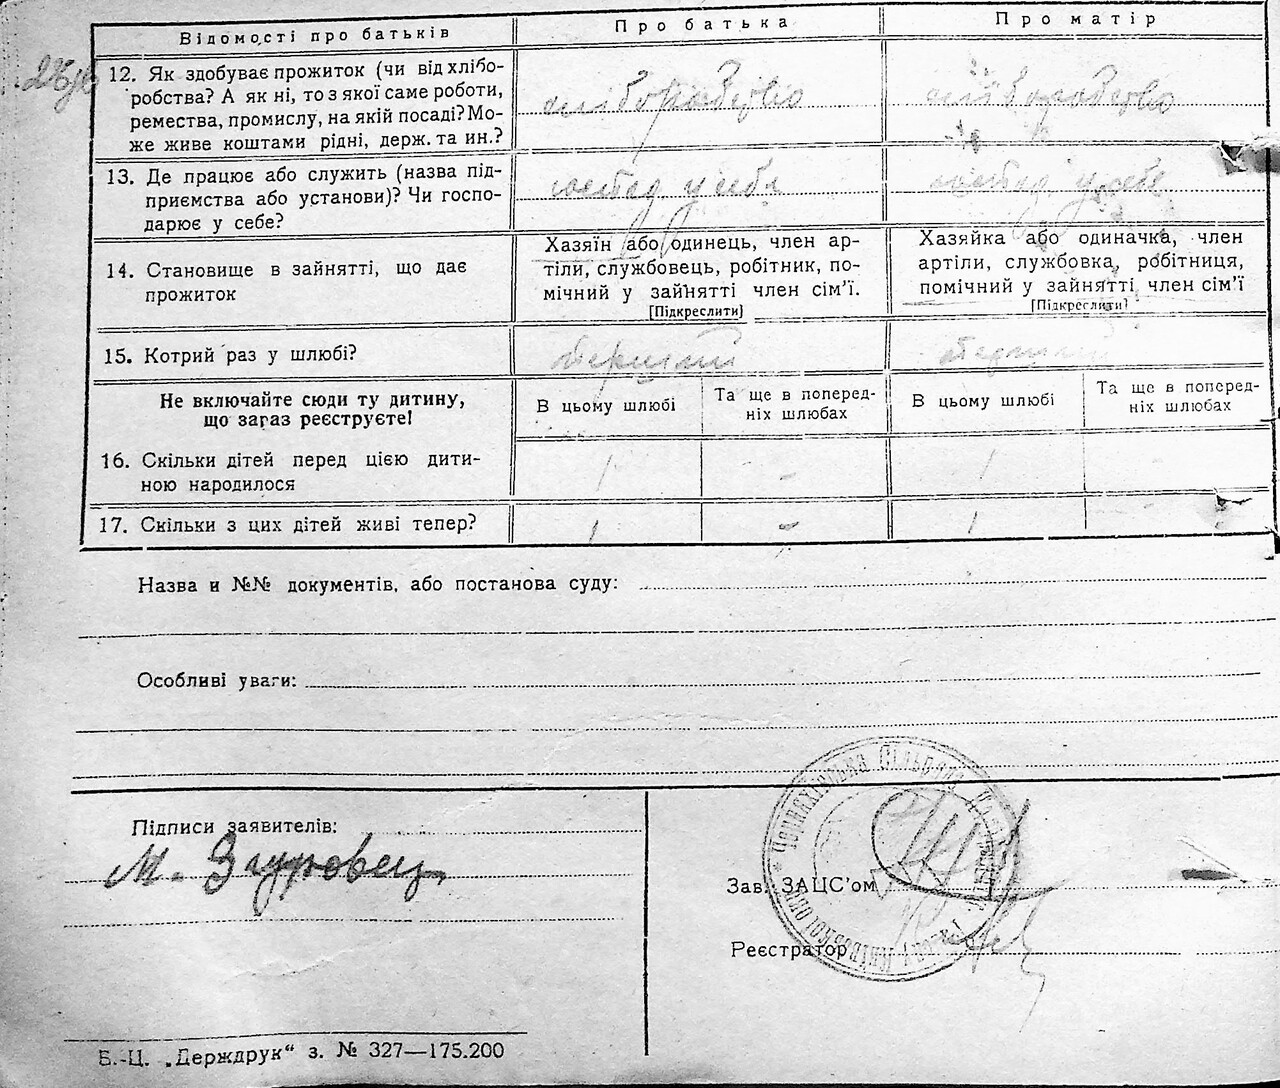 Відомості про батьків
Про батька
Про матір
12. Як здобуває прожиток (чи від хлібо-
робства? А як ні, то з якої саме роботи,
ремества, промислу, на якій посаді? Мо-
же живе коштами рідні, держ. та ин.?
хліборобство
хліборобство
13. Де працює або служить (назва під-
приємства або установи)? Чи госпо-
дарює у себе?
господ. у себе
господ. у себе
14. Становище в зайнятті, що дає
прожиток
Хазяїн або одинець, член ар-
тіли, службовець, робітник, по-
мічний у зайнятті член сім'ї.
[Підкреслити]
Хазяйка або одиначка, член
артіли, службовка, робітниця,
помічний у зайнятті член сім'ї
[Підкреслити]
15. Котрий раз у шлюбі?
перший
перший
Не включайте сюди ту дитину,
що зараз реєструєте!
В цьому шлюбі
Та ще в поперед-
ніх шлюбах
В цьому шлюбі
Та ще в поперед-
ніх шлюбах
16. Скільки дітей перед цією дити-
ною народилося
1 - 1 -
17. Скільки з цих дітей живі тепер?
1 - 1 -
Назва и №№ документів, або постанова суду:
Особливі уваги:
Підписи заявителів:
М. Згуровец
Зав. ЗАЦС'ом
Реєстратор
Черняхівська Сільрада
Б.-Ц. „Держдрук“ з. № 327—175.200